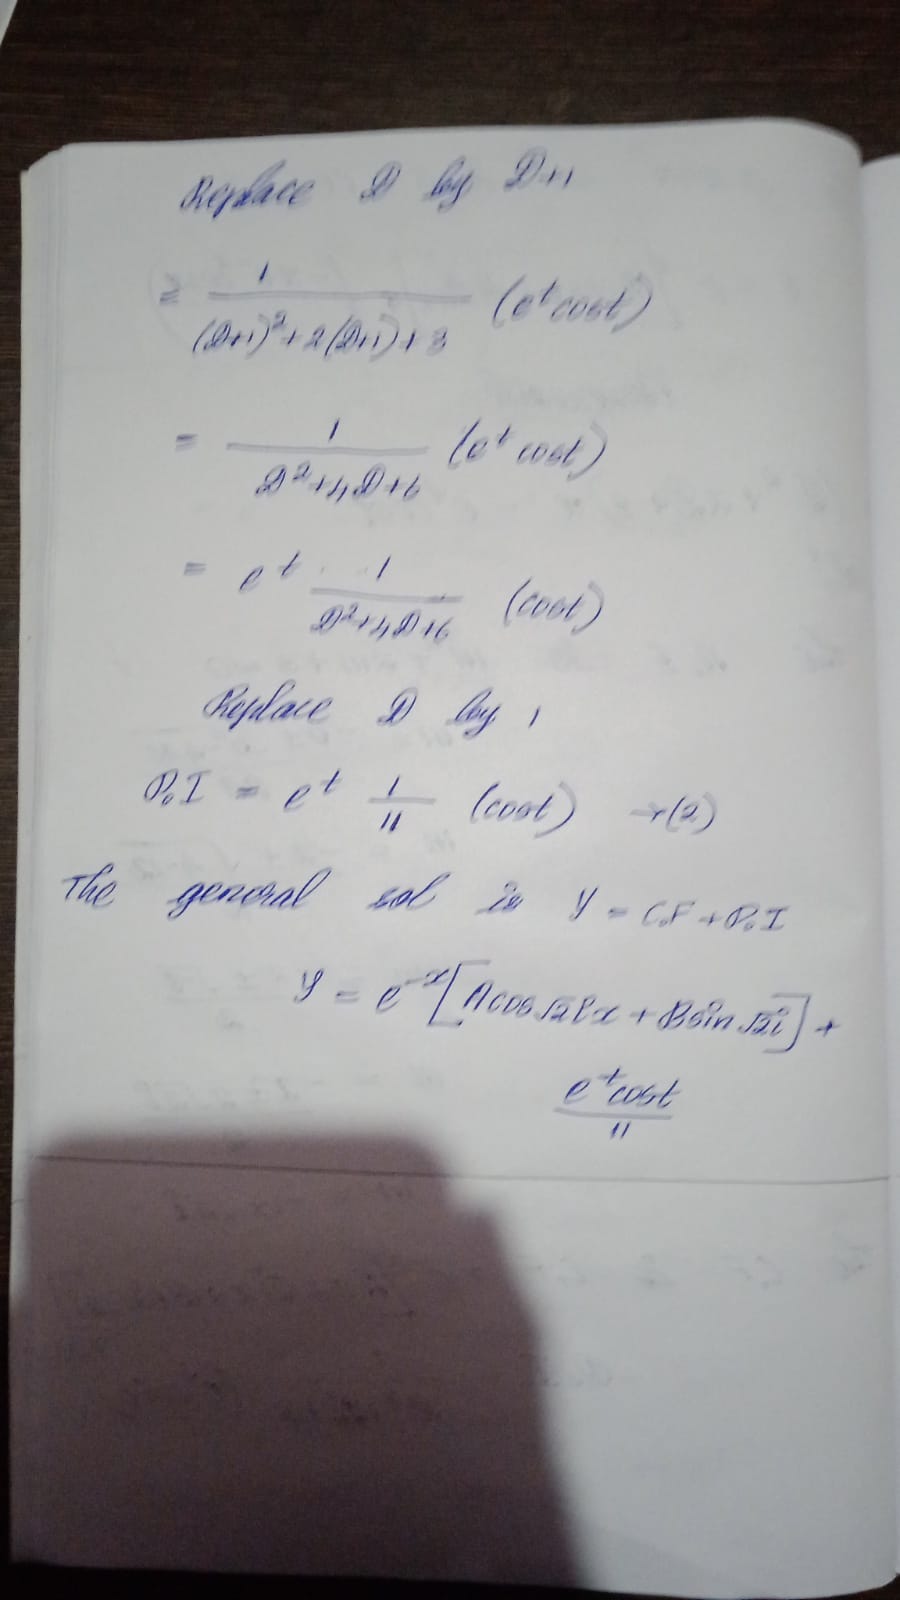 Replace D by D+1
= 1/((D+1)²+2(D+1)+3) (e^t cost)
= 1/(D²+4D+6) (e^t cost)
= e^t 1/(D²+4D+6) (cost)
Replace D by 1
P.I = e^t 1/11 (cost) →(2)
The general sol is y = C.F + P.I
y = e^-x [A cos √2i x + B sin √2i] +
e^t cost/11